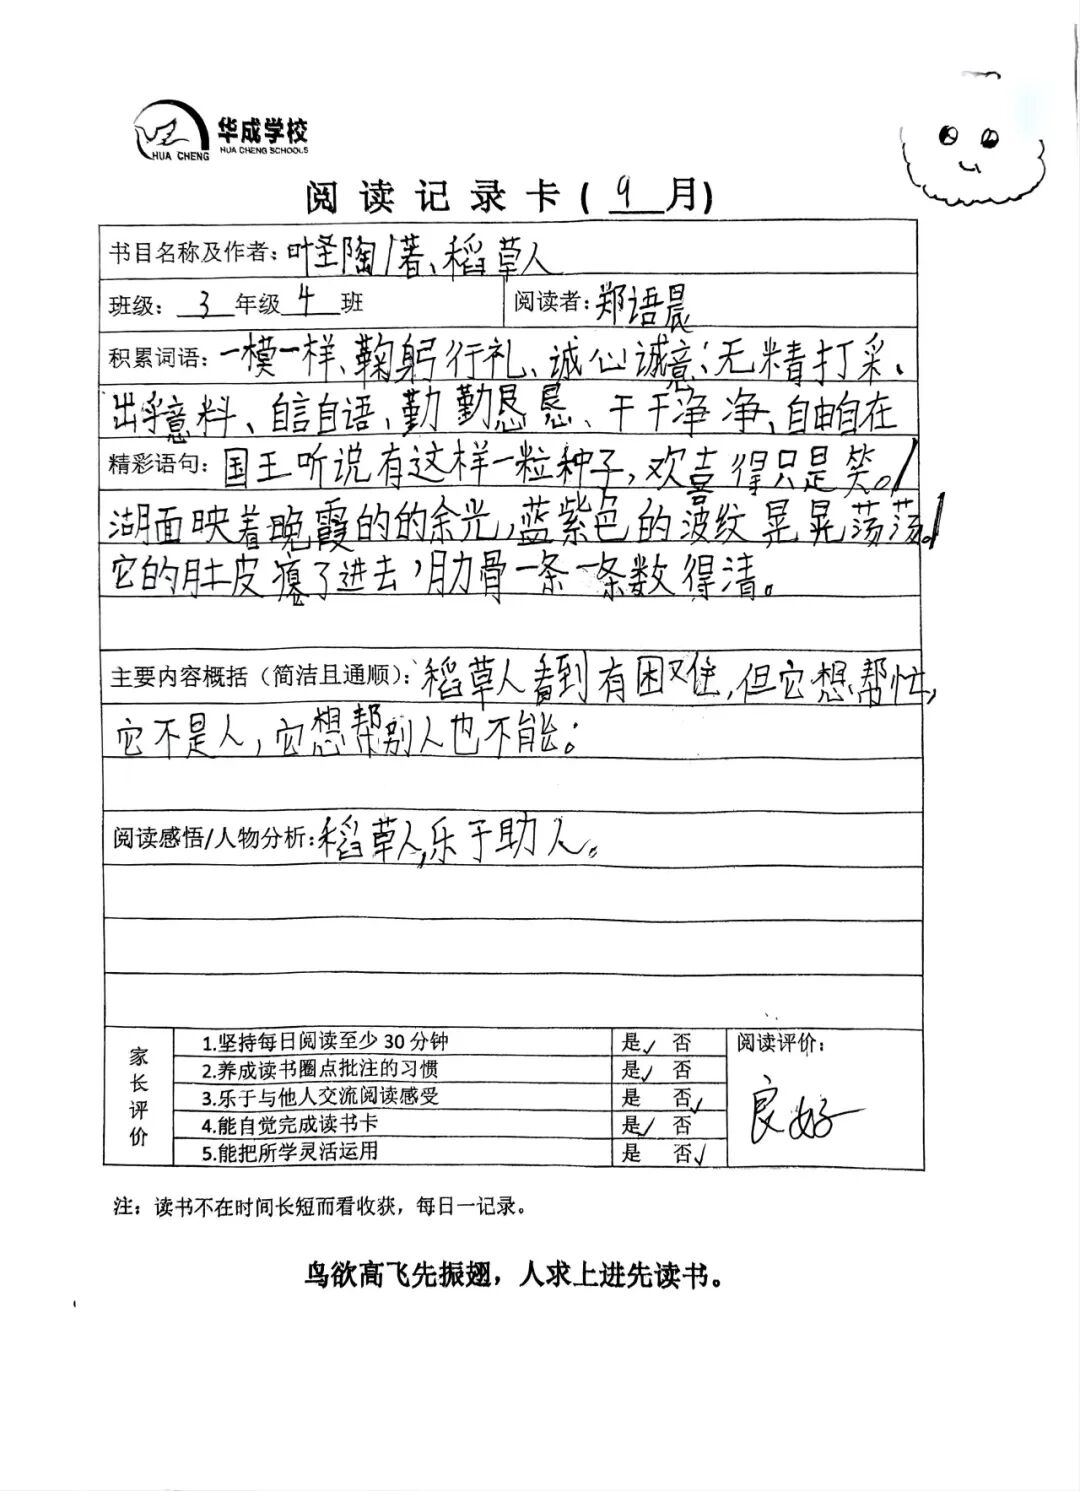 华成学校
HUA CHENG SCHOOLS
HUA CHENG
阅读记录卡(9月)
书目名称及作者:叶圣陶/著、稻草人
班级:3年级4班 阅读者:郑语晨
积累词语:一模一样、鞠躬行礼、诚心诚意、无精打采、
出乎意料、自言自语、勤勤恳恳、干干净净、自由自在
精彩语句:国王听说有这样一粒种子,欢喜得只是笑。/
湖面映着晚霞的的余光,蓝紫色的波纹晃晃荡荡。/
它的肚皮瘪了进去,肋骨一条一条数得清。
主要内容概括(简洁且通顺):稻草人看到有困难,但它想帮忙,
它不是人,它想帮别人也不能。
阅读感悟/人物分析:稻草人,乐于助人。
家长评价
1.坚持每日阅读至少30分钟 是✓ 否
2.养成读书圈点批注的习惯 是✓ 否
3.乐于与他人交流阅读感受 是 否✓
4.能自觉完成读书卡 是✓ 否
5.能把所学灵活运用 是 否✓
阅读评价:
良好
注:读书不在时间长短而看收获,每日一记录。
鸟欲高飞先振翅,人求上进先读书。